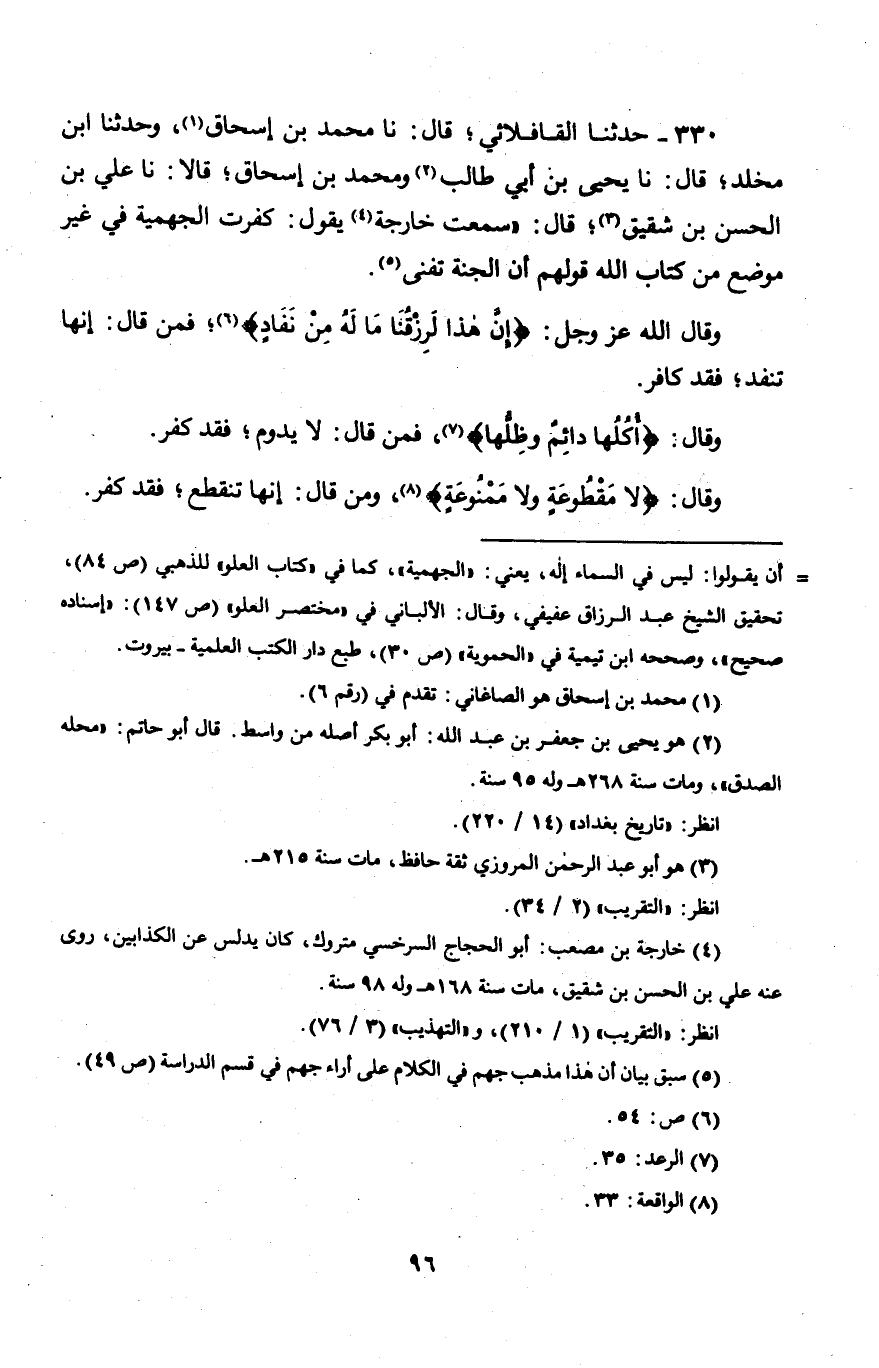 ٣٣٠ ـ حدثنـا القـافـلائي؛ قال: نا محمد بن إسحاق(١)، وحدثنا ابن
مخلد؛ قال: نا يحيى بن أبي طالب(٢) ومحمد بن إسحاق؛ قالا: نا علي بن
الحسن بن شقيق(٣)؛ قال: «سمعت خارجة(٤) يقول: كفرت الجهمية في غير
موضع من كتاب الله قولهم أن الجنة تفنى(٥).
وقال الله عز وجل: ﴿إِنَّ هٰذا لَرِزْقُنَا مَا لَهُ مِنْ نَفَادٍ﴾(٦)؛ فمن قال: إنها
تنفد؛ فقد كافر.
وقال: ﴿أُكُلُها دائِمٌ وظِلُّها﴾(٧)، فمن قال: لا يدوم؛ فقد كفر.
وقال: ﴿لا مَقْطُوعَةٍ ولا مَمْنُوعَةٍ﴾(٨)، ومن قال: إنها تنقطع؛ فقد كفر.
= أن يقـولوا: ليس في السماء إلٰه، يعني: «الجهمية»، كما في «كتاب العلو» للذهبي (ص ٨٤)،
تحقيق الشيخ عبـد الـرزاق عفيفي، وقـال: الألبـاني في «مختصـر العلو» (ص ١٤٧): «إسناده
صحيح»، وصححه ابن تيمية في «الحموية» (ص ٣٠)، طبع دار الكتب العلمية ـ بيروت.
(١) محمد بن إسحاق هو الصاغاني: تقدم في (رقم ٦).
(٢) هو يحيى بن جعفـر بن عبـد الله: أبو بكر أصله من واسط. قال أبو حاتم: «محله
الصدق»، ومات سنة ٢٦٨هـ وله ٩٥ سنة.
انظر: «تاريخ بغداد» (١٤ / ٢٢٠).
(٣) هو أبو عبد الرحمٰن المروزي ثقة حافظ، مات سنة ٢١٥هـ.
انظر: «التقريب» (٢ / ٣٤).
(٤) خارجة بن مصعب: أبو الحجاج السرخسي متروك، كان يدلس عن الكذابين، روى
عنه علي بن الحسن بن شقيق، مات سنة ١٦٨هـ وله ٩٨ سنة.
انظر: «التقريب» (١ / ٢١٠)، و«التهذيب» (٣ / ٧٦).
(٥) سبق بيان أن هٰذا مذهب جهم في الكلام على أراء جهم في قسم الدراسة (ص ٤٩).
(٦) ص: ٥٤.
(٧) الرعد: ٣٥.
(٨) الواقعة: ٣٣.
٩٦